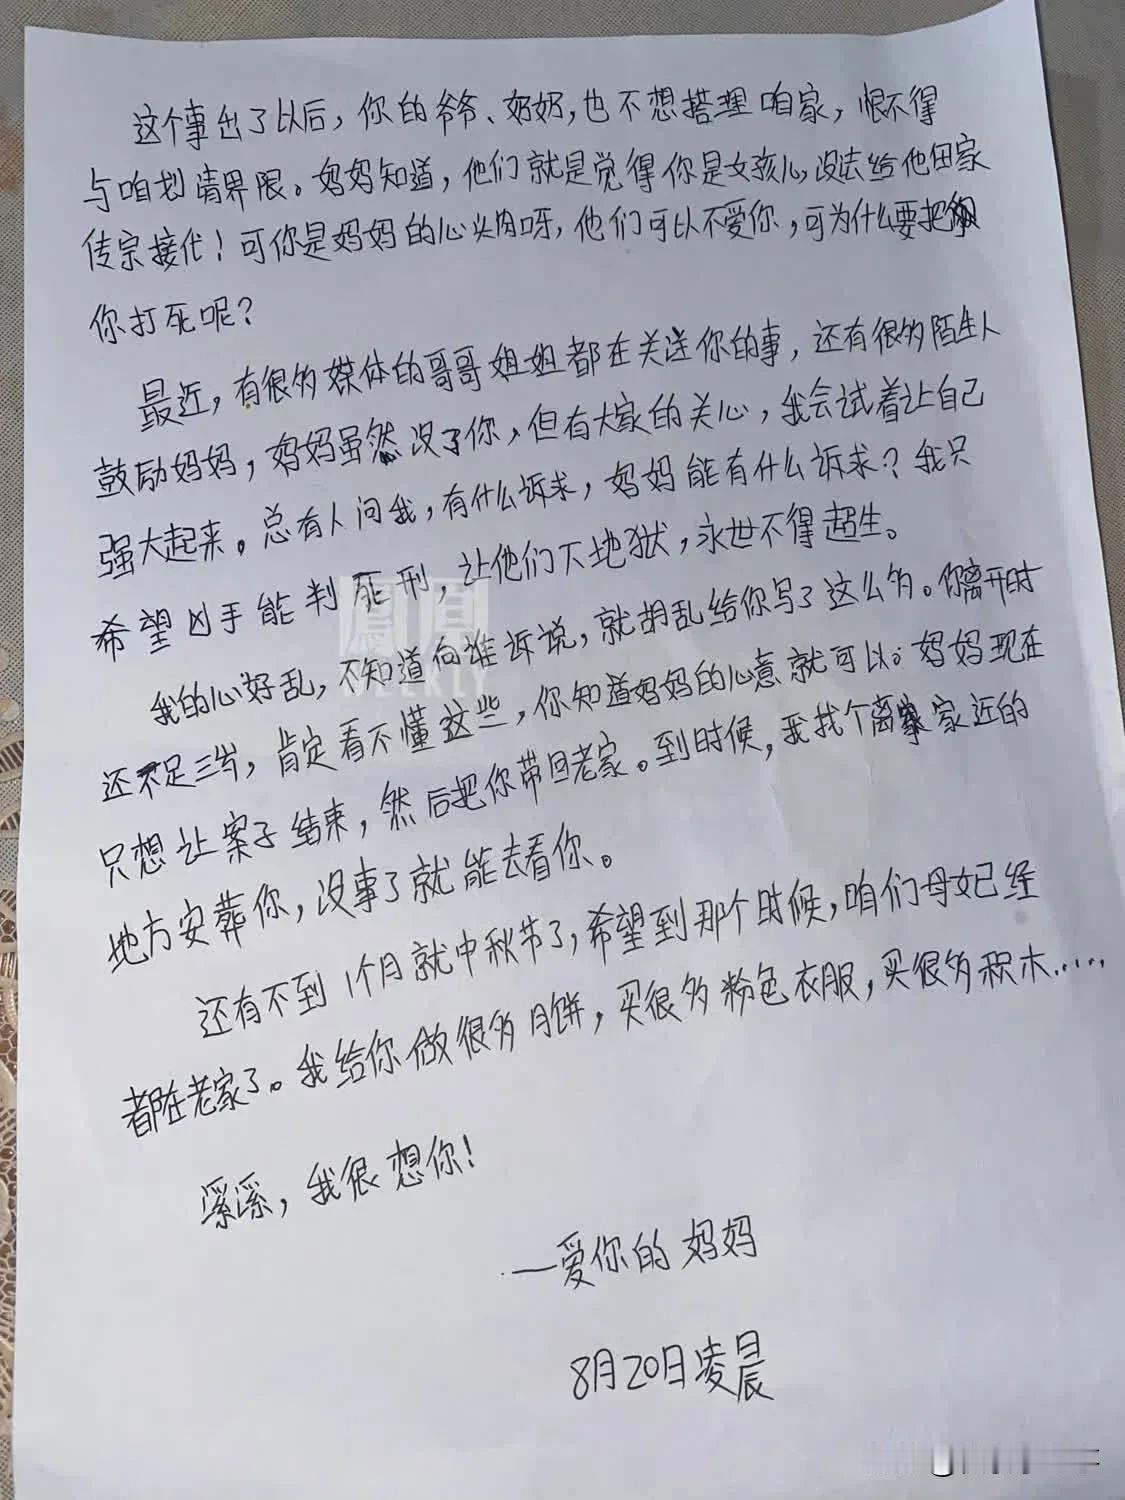 这个事出了以后，你的爷、奶奶，也不想搭理咱家，恨不得
与咱划清界限。妈妈知道，他们就是觉得你是女孩儿，没法给他田家
传宗接代！可你是妈妈的心头肉呀，他们可以不爱你，可为什么要把
你打死呢？
最近，有很多媒体的哥哥姐姐都在关注你的事，还有很多陌生人
鼓励妈妈，妈妈虽然没了你，但有大家的关心，我会试着让自己
强大起来。总有人问我，有什么诉求，妈妈能有什么诉求？我只
希望凶手能判死刑，让他们下地狱，永世不得超生。
我的心好乱，不知道向谁诉说，就胡乱给你写了这么多。你离开时
还不足三岁，肯定看不懂这些，你知道妈妈的心意就可以。妈妈现在
只想让案子结束，然后把你带回老家。到时候，我找个离家近的
地方安葬你，没事了就能去看你。
还有不到1个月就中秋节了，希望到那个时候，咱们母女已经
都在老家了。我给你做很多月饼，买很多粉色衣服，买很多积木……
溪溪，我很想你！
——爱你的妈妈
8月20日凌晨
鳳凰
WEEKLY